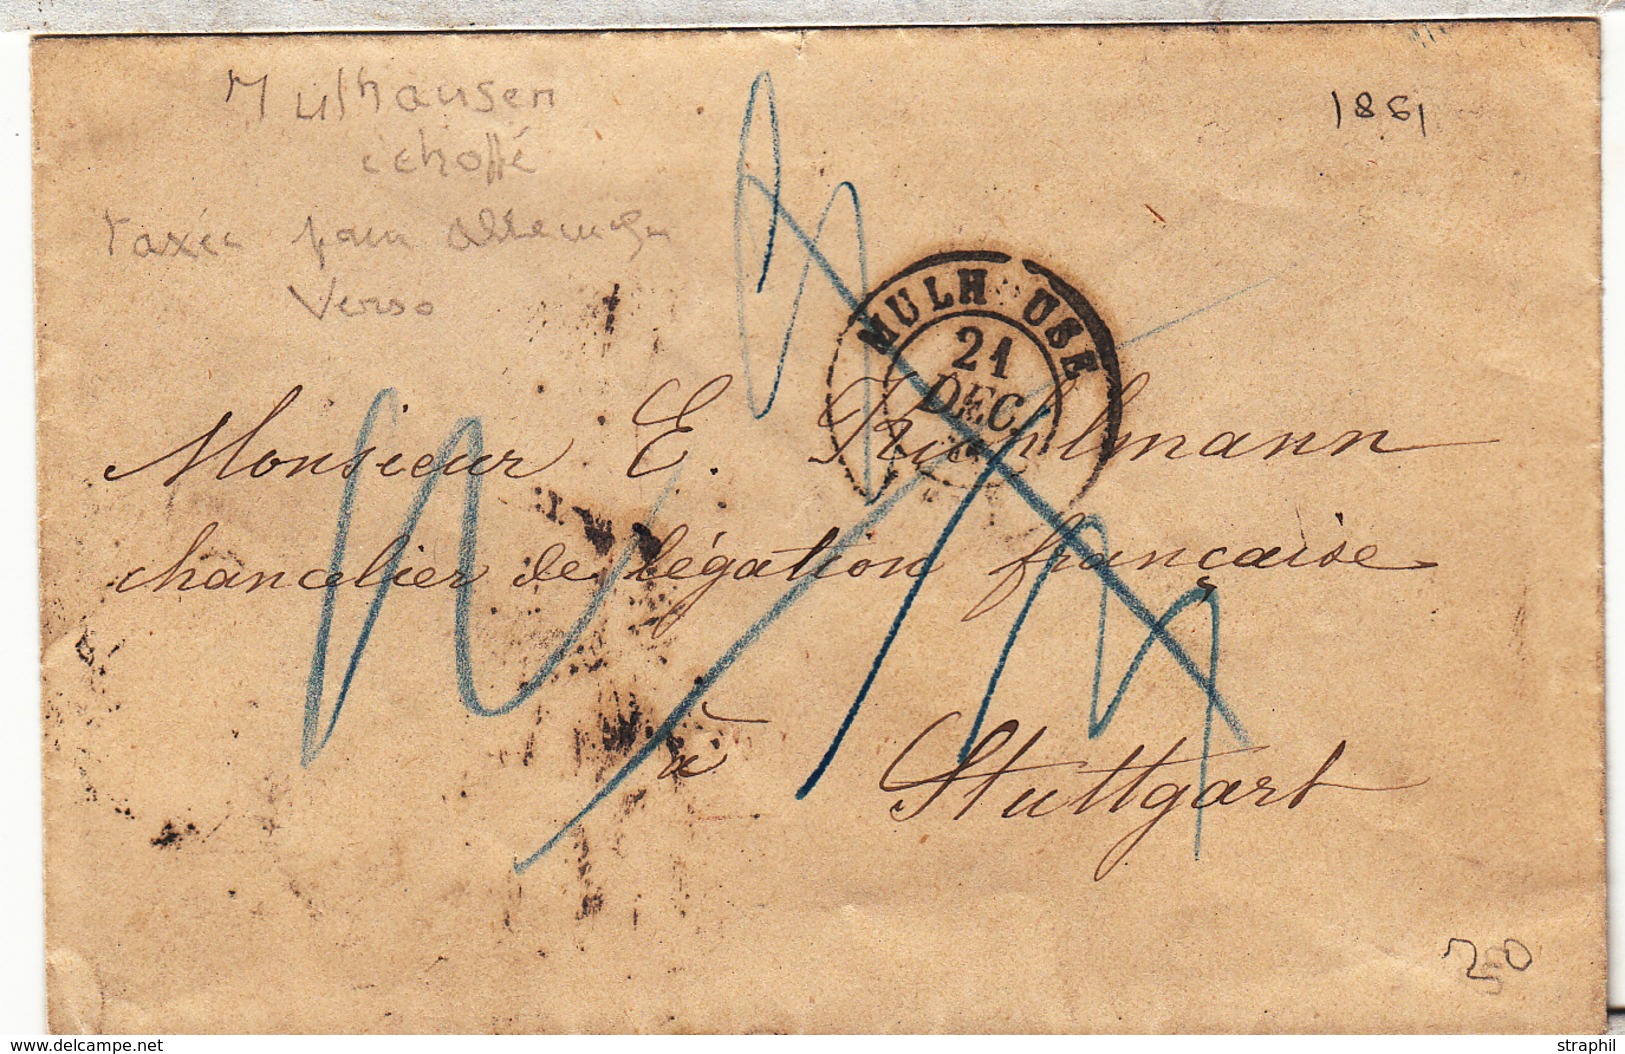 Mulhausen
échoppé
taxée pour
Verso
1861
MULH USE
21
DEC.
Monsieur E. Kuhlmann
chancelier de légation française
à Stuttgart
20
delcampe.net
straphil